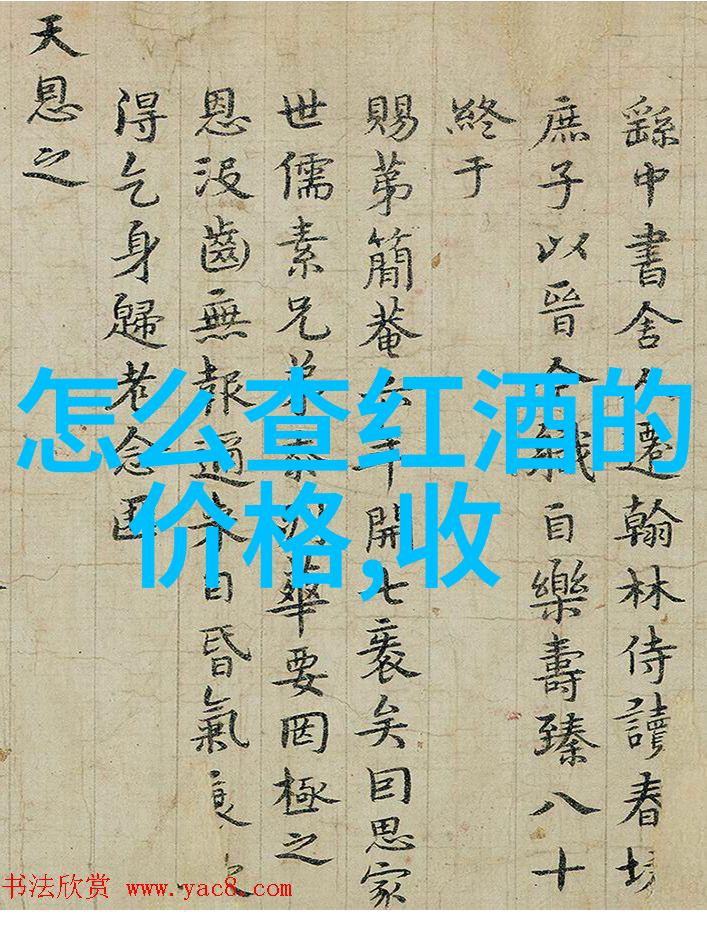 繇中書舍人遷翰林侍讀春坊
庶子以晉今職自樂壽臻八十
終于
賜第簡菴
開七袠矣回思家
世儒素兄弟
華要罔極之
恩没齒無報邇来日昏氣衰
得乞身歸老念
天恩之
怎么查红酒的
价格,收
书法欣赏 www.yac8.com